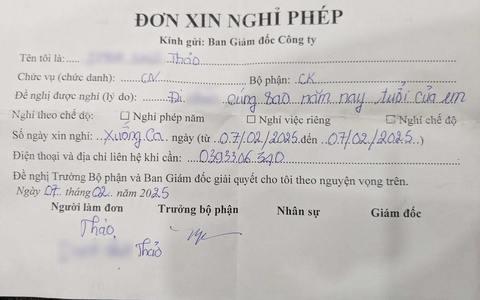 ĐƠN XIN NGHỈ PHÉP
Kính gửi: Ban Giám đốc Công ty
Tên tôi là: Thảo
Chức vụ (chức danh): CN Bộ phận: CK
Đề nghị được nghỉ (lý do): Đi cúng sao năm nay tuổi của em
Nghỉ theo chế độ: ☐ Nghỉ phép năm ☐ Nghỉ việc riêng ☐ Nghỉ chế độ
Số ngày xin nghỉ: Xuống Ca ngày (từ 07/02/2025 đến 07/02/2025)
Điện thoại và địa chỉ liên hệ khi cần: 0393306340
Đề nghị Trưởng Bộ phận và Ban Giám đốc giải quyết cho tôi theo nguyện vọng trên.
Ngày 07 tháng 02 năm 2025
Người làm đơn Trưởng bộ phận Nhân sự Giám đốc
Thảo
Thảo